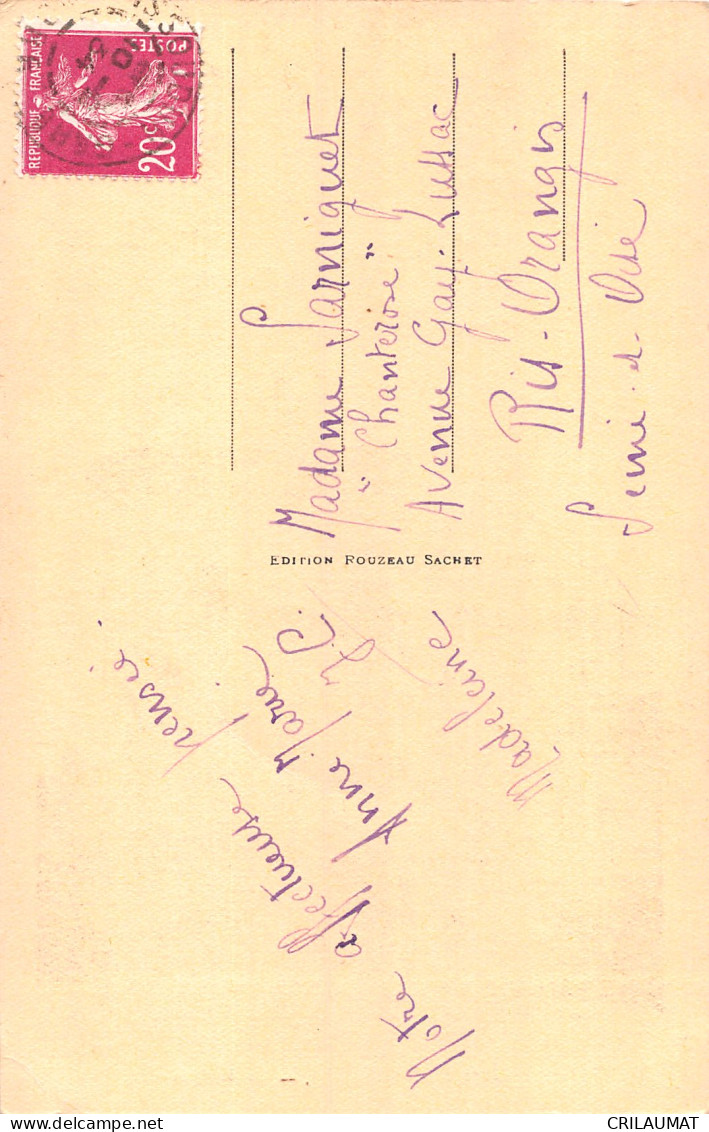 REPUBLIQUE FRANÇAISE
POSTES
20c
Notre affectueuse pensée.
Anne Marie
J.C.
Madeleine
EDITION ROUZEAU SACHET
Madame Sarniguet
"Chanterose"
Avenue Gay-Lussac
Ris-Orangis
Seine-et-Oise
CRILAUMAT